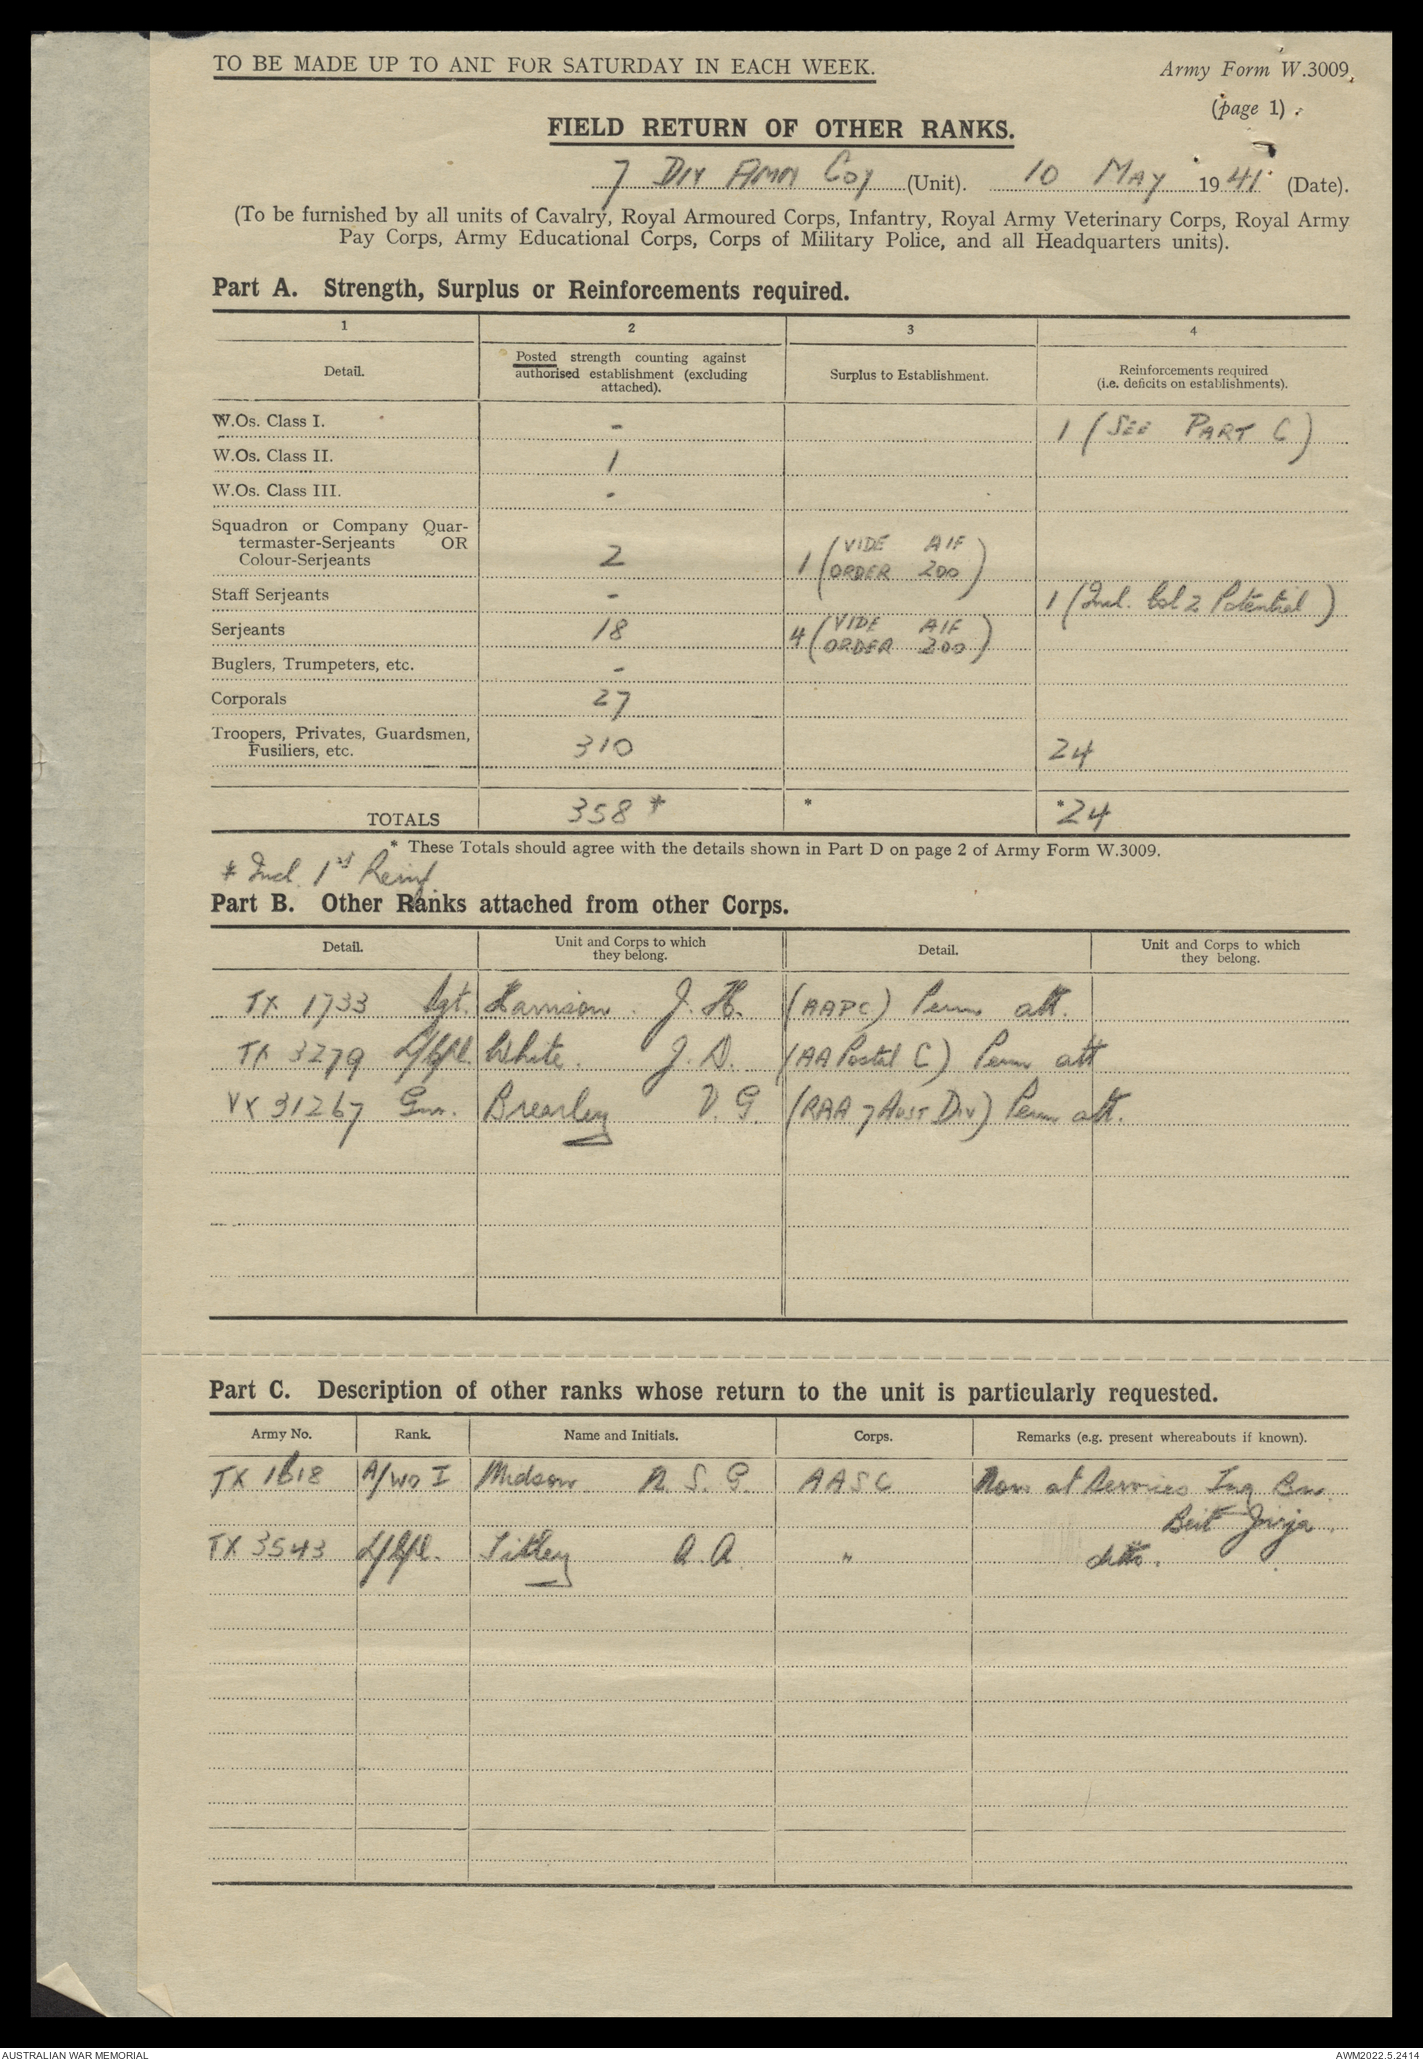 TO BE MADE UP TO AND FOR SATURDAY IN EACH WEEK.
Army Form W.3009.
(page 1)
FIELD RETURN OF OTHER RANKS.
7 Div Amm Coy (Unit). 10 May 1941 (Date).
(To be furnished by all units of Cavalry, Royal Armoured Corps, Infantry, Royal Army Veterinary Corps, Royal Army
Pay Corps, Army Educational Corps, Corps of Military Police, and all Headquarters units).
Part A. Strength, Surplus or Reinforcements required.
1 2 3 4
Detail.
Posted strength counting against
authorised establishment (excluding
attached).
Surplus to Establishment.
Reinforcements required
(i.e. deficits on establishments).
W.Os. Class I. - 1 (SEE PART C)
W.Os. Class II. 1
W.Os. Class III. -
Squadron or Company Quar-
termaster-Serjeants OR
Colour-Serjeants 2 1 (VIDE AIF
ORDER 200)
Staff Serjeants - 1 (Incl. Col 2 Potential)
Serjeants 18 4 (VIDE AIF
ORDER 200)
Buglers, Trumpeters, etc. -
Corporals 27
Troopers, Privates, Guardsmen,
Fusiliers, etc. 310 24
TOTALS 358 * * *24
* These Totals should agree with the details shown in Part D on page 2 of Army Form W.3009.
* Incl. 1st Reinf.
Part B. Other Ranks attached from other Corps.
Detail.
Unit and Corps to which
they belong.
Detail.
Unit and Corps to which
they belong.
TX 1733 Sgt. Harrison. J. H. (AAPC) Perm att.
TX 3279 L/Cpl. White. J. D. (AA Postal C) Perm att
VX 31267 Gnr. Brearley V. G. (RAA 7 Aust Div) Perm att.
Part C. Description of other ranks whose return to the unit is particularly requested.
Army No. Rank. Name and Initials. Corps. Remarks (e.g. present whereabouts if known).
TX 1618 A/WO I Midson. A. S. G. AASC Now at Services Trg Bn.
Beit Jirja.
TX 3543 L/Cpl. Titley A. A. " ditto.
AUSTRALIAN WAR MEMORIAL
AWM2022.5.2414